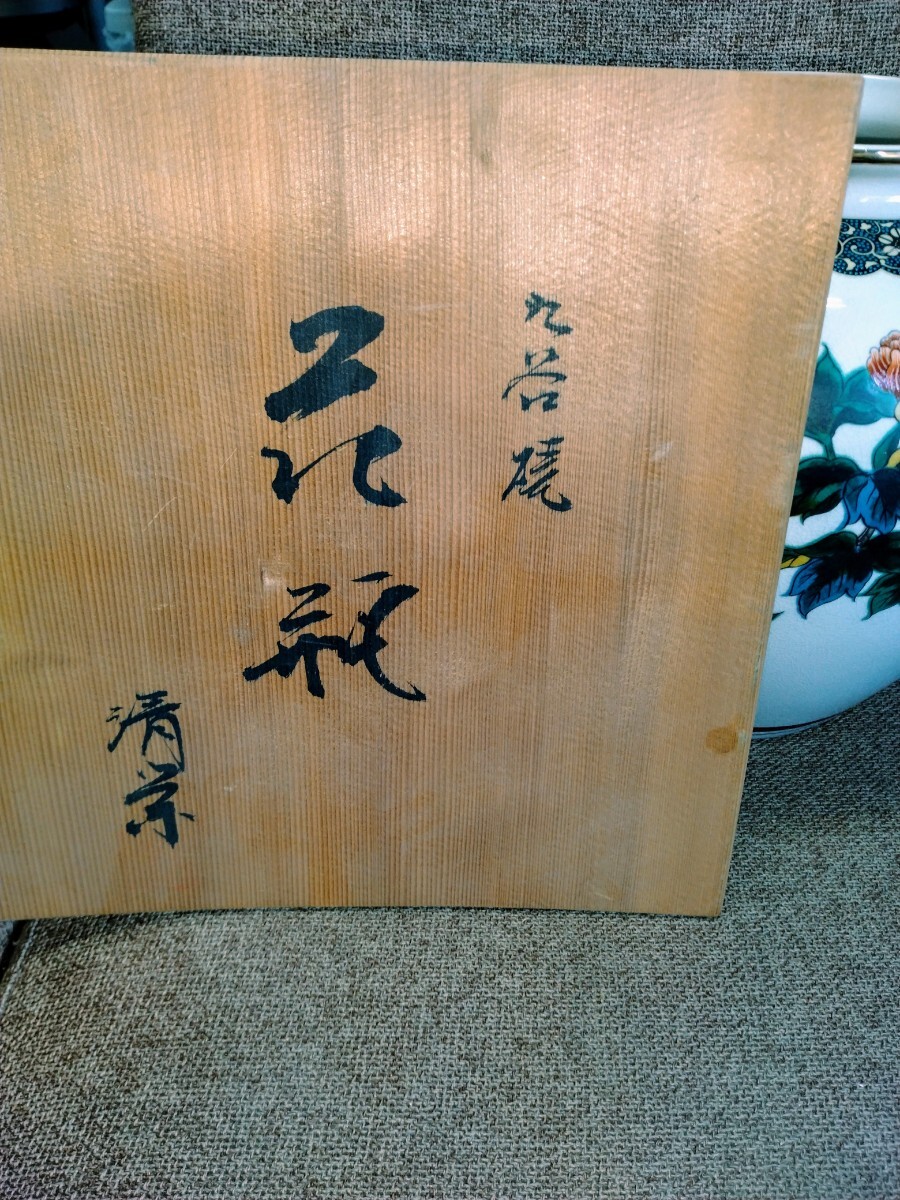 九谷焼
花瓶
清栄